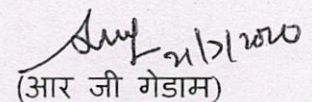 21/2/2020
(आर जी गेडाम)